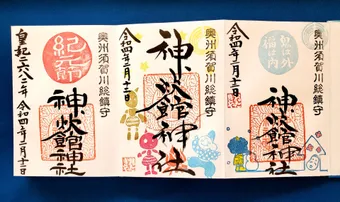 鬼は外
福は内
奥州須賀川総鎮守
神炊館神社
令和四年二月
奥州須賀川総鎮守
神炊館神社
令和四年二月
神炊館神社
皇紀二六八二年 令和四年二月十一日